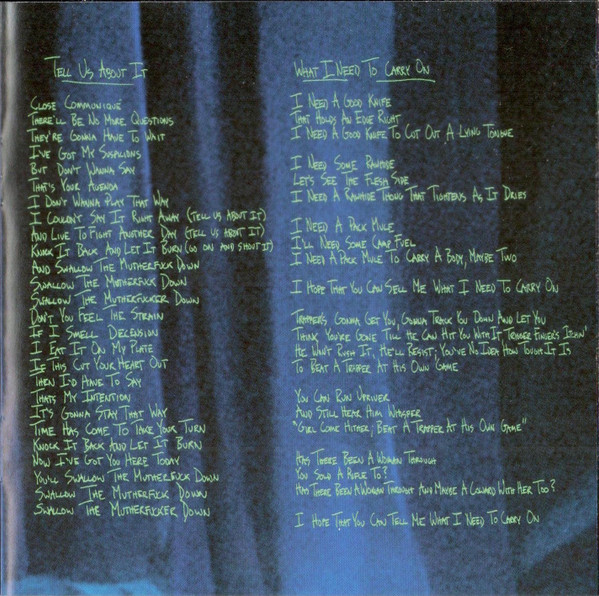 Tell Us About It
Close Communique
There'll Be No More Questions
They're Gonna Have To Wait
I've Got My Suspicions
But Don't Wanna Say
That's Your Agenda
I Don't Wanna Play That Way
I Couldn't Say It Right Away (Tell Us About It)
And Live To Fight Another Day (Tell Us About It)
Knock It Back And Let It Burn (Go On And Shout It)
And Swallow The Mutherfuck Down
Swallow The Mutherfuck Down
Swallow The Mutherfucker Down
Don't You Feel The Strain
If I Smell Decension
I Eat It On My Plate
If This Cut Your Heart Out
Then I'd Have To Say
Thats My Intention
It's Gonna Stay That Way
Time Has Come To Take Your Turn
Knock It Back And Let It Burn
Now I've Got You Here Today
You'll Swallow The Mutherfuck Down
Swallow The Mutherfuck Down
Swallow The Mutherfucker Down
What I Need To Carry On
I Need A Good Knife
That Holds An Edge Right
I Need A Good Knife To Cut Out A Lying Tongue
I Need Some Rawhide
Let's See The Flesh Side
I Need A Rawhide Thong That Tightens As It Dries
I Need A Pack Mule
I'll Need Some Camp Fuel
I Need A Pack Mule To Carry A Body, Maybe Two
I Hope That You Can Sell Me What I Need To Carry On
Trapper's Gonna Get You, Gonna Track You Down And Let You
Think You're Gone Till He Can Hit You With It Trigger Finger's Itchin'
He Won't Rush It, He'll Resist; You've No Idea How Tough It Is
To Beat A Trapper At His Own Game
You Can Run Upriver
And Still Hear Him Whisper
"Girl Come Hither; Beat A Trapper At His Own Game"
Has There Been A Woman Through
You Sold A Rifle To?
Has There Been A Woman Throught And Maybe A Coward With Her Too?
I Hope That You Can Tell Me What I Need To Carry On